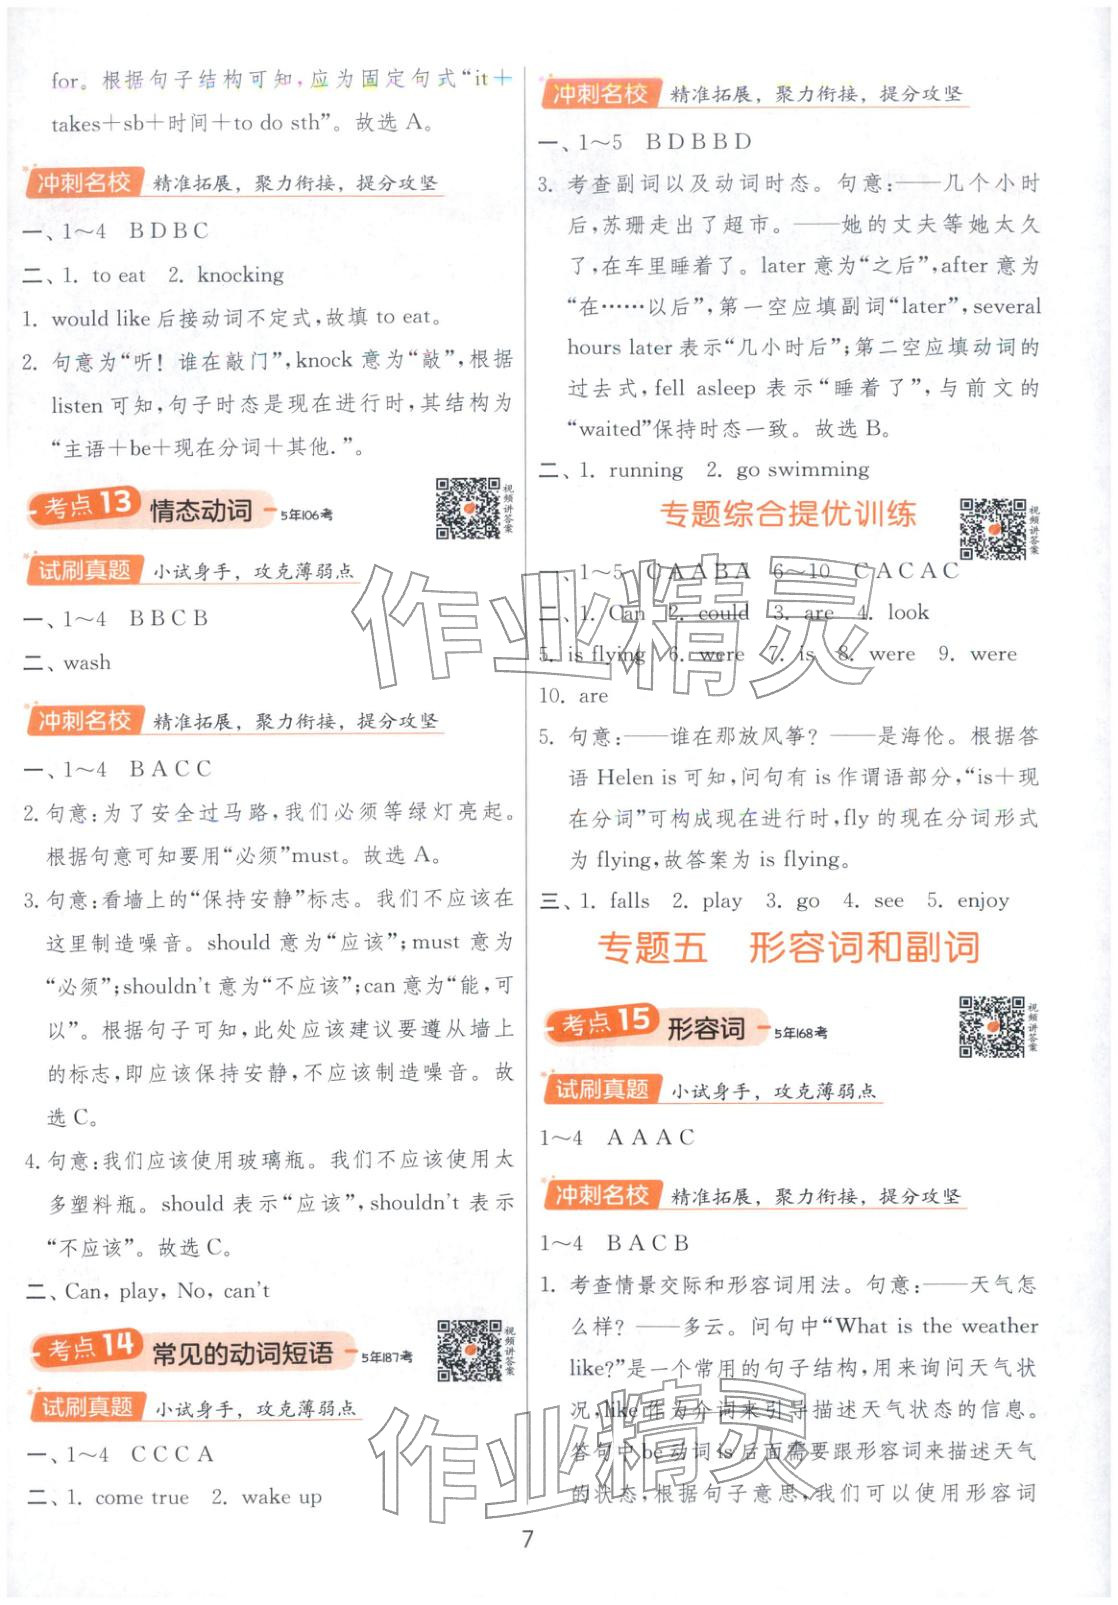 for。根据句子结构可知,应为固定句式“it＋
takes＋sb＋时间＋to do sth”。故选 A。
冲刺名校 精准拓展，聚力衔接，提分攻坚
一、1～4 B D B C
二、1. to eat 2. knocking
1. would like 后接动词不定式,故填 to eat。
2. 句意为“听！谁在敲门”,knock 意为“敲”,根据
listen 可知,句子时态是现在进行时,其结构为
“主语＋be＋现在分词＋其他.”。
考点 13 情态动词 5年106考
视频讲答案
试刷真题 小试身手，攻克薄弱点
一、1～4 B B C B
二、wash
冲刺名校 精准拓展，聚力衔接，提分攻坚
一、1～4 B A C C
2. 句意:为了安全过马路,我们必须等绿灯亮起。
根据句意可知要用“必须”must。故选 A。
3. 句意:看墙上的“保持安静”标志。我们不应该在
这里制造噪音。should 意为“应该”;must 意为
“必须”;shouldn't 意为“不应该”;can 意为“能,可
以”。根据句子可知,此处应该建议要遵从墙上
的标志,即应该保持安静,不应该制造噪音。故
选 C。
4. 句意:我们应该使用玻璃瓶。我们不应该使用太
多塑料瓶。should 表示“应该”,shouldn't 表示
“不应该”。故选 C。
二、Can, play, No, can't
考点 14 常见的动词短语 5年187考
视频讲答案
试刷真题 小试身手，攻克薄弱点
一、1～4 C C C A
二、1. come true 2. wake up
冲刺名校 精准拓展，聚力衔接，提分攻坚
一、1～5 B D B B D
3. 考查副词以及动词时态。句意:——几个小时
后,苏珊走出了超市。——她的丈夫等她太久
了,在车里睡着了。later 意为“之后”,after 意为
“在……以后”,第一空应填副词“later”,several
hours later 表示“几小时后”;第二空应填动词的
过去式,fell asleep 表示“睡着了”,与前文的
“waited”保持时态一致。故选 B。
二、1. running 2. go swimming
专题综合提优训练
视频讲答案
一、1～5 C A A B A 6～10 C A C A C
二、1. Can 2. could 3. are 4. look
5. is flying 6. were 7. is 8. were 9. were
10. are
5. 句意:——谁在那放风筝？——是海伦。根据答
语 Helen is 可知,问句有 is 作谓语部分,“is＋现
在分词”可构成现在进行时,fly 的现在分词形式
为 flying,故答案为 is flying。
三、1. falls 2. play 3. go 4. see 5. enjoy
专题五 形容词和副词
考点 15 形容词 5年168考
视频讲答案
试刷真题 小试身手，攻克薄弱点
1～4 A A A C
冲刺名校 精准拓展，聚力衔接，提分攻坚
1～4 B A C B
1. 考查情景交际和形容词用法。句意:——天气怎
么样？——多云。问句中“What is the weather
like?”是一个常用的句子结构,用来询问天气状
况,like 作为介词来引导描述天气状态的信息。
答句中 be 动词 is 后面需要跟形容词来描述天气
的状态,根据句子意思,我们可以使用形容词
7
作业精灵
作业精灵